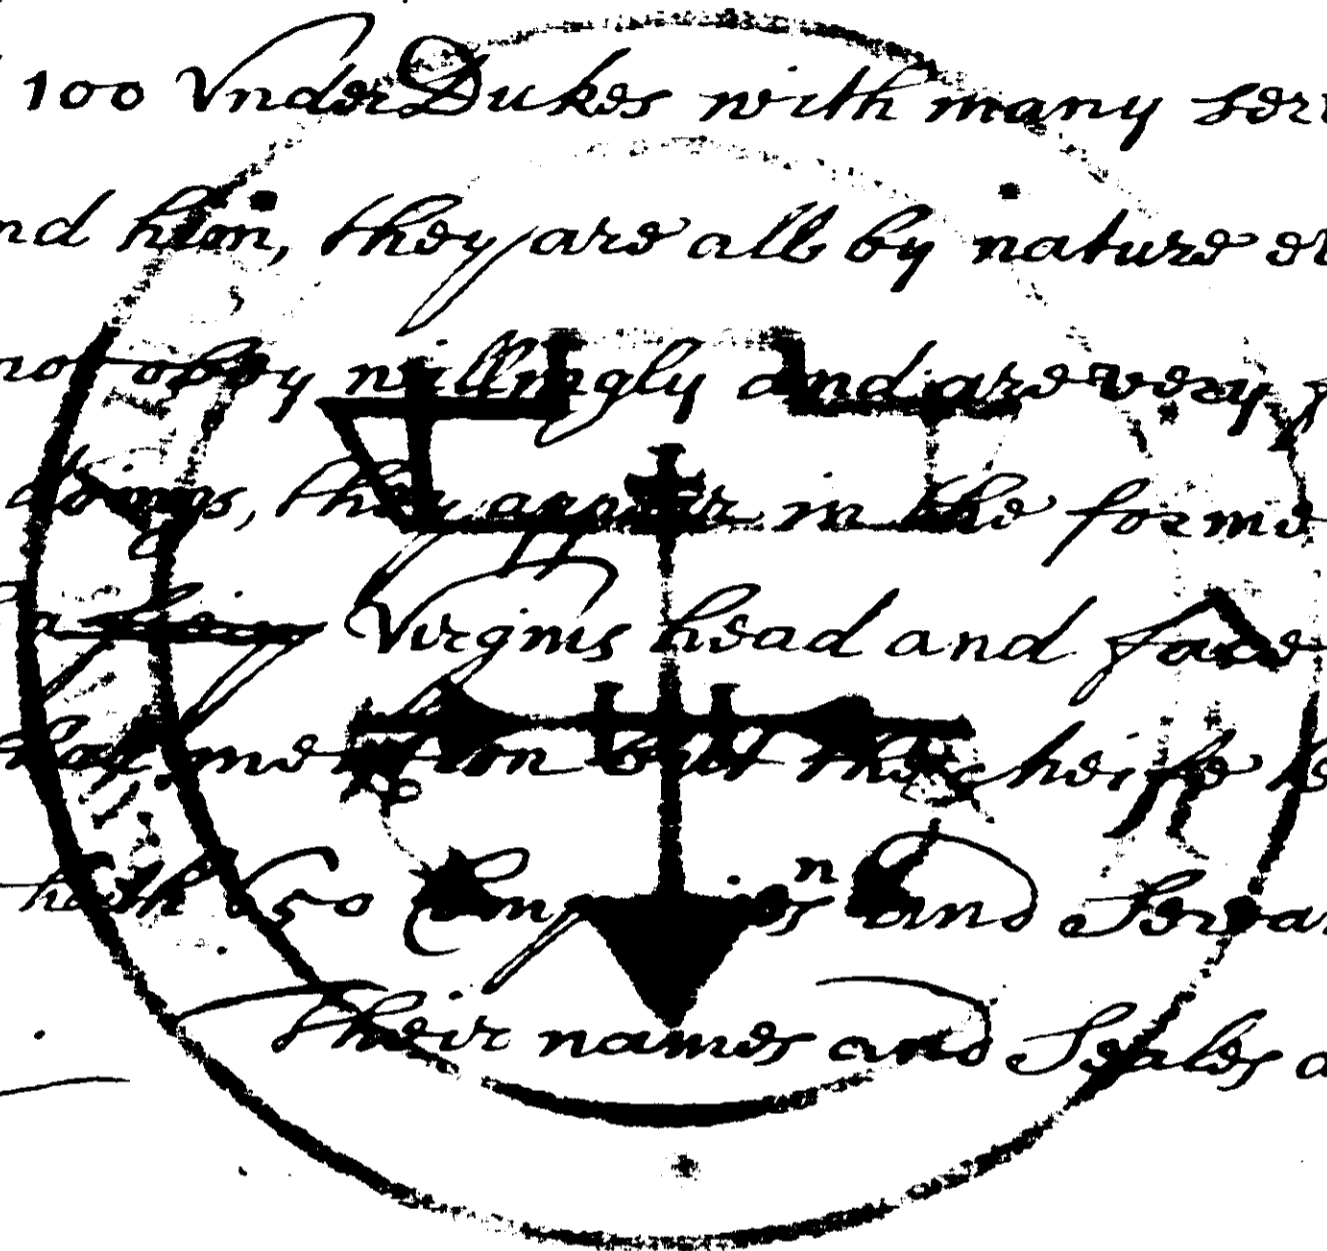 100 VnderDukes with many ser
nd him, they are all by nature
not obey willingly and are very
doings, they appear in the forme
a Virgins head and face
mention but the cheife
hath and Servan
Their names and Seales a